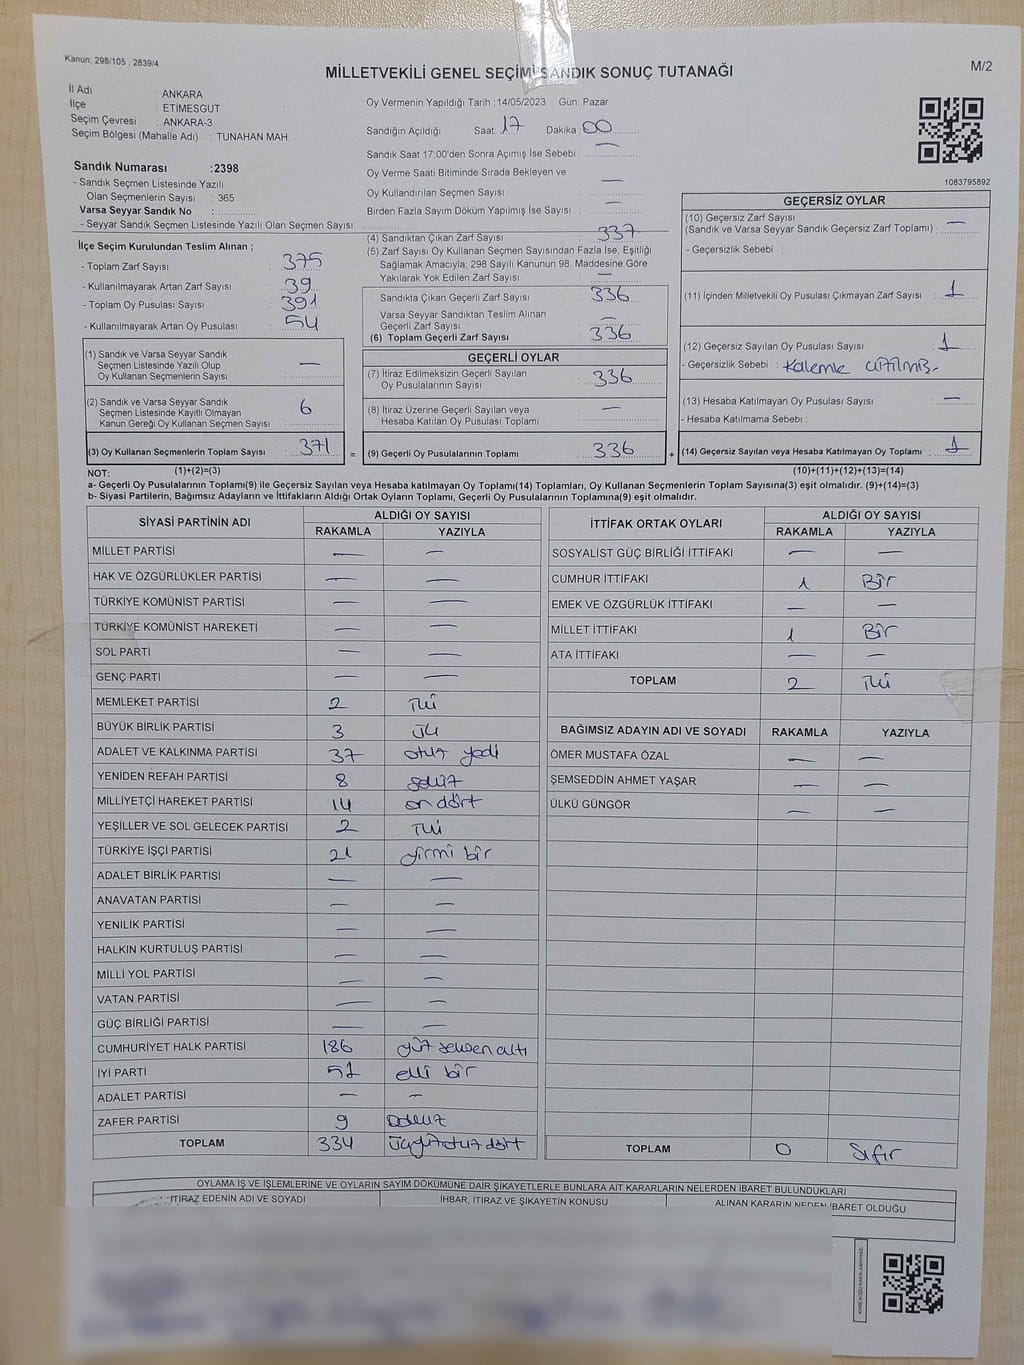 Kanun: 298/105 , 2839/4
MİLLETVEKİLİ GENEL SEÇİMİ SANDIK SONUÇ TUTANAĞI
M/2
İl Adı : ANKARA
İlçe : ETİMESGUT
Seçim Çevresi : ANKARA-3
Seçim Bölgesi (Mahalle Adı) : TUNAHAN MAH.
Sandık Numarası :2398
- Sandık Seçmen Listesinde Yazılı
Olan Seçmenlerin Sayısı : 365
Varsa Seyyar Sandık No :
- Seyyar Sandık Seçmen Listesinde Yazılı Olan Seçmen Sayısı:
Oy Vermenin Yapıldığı Tarih :14/05/2023 Gün: Pazar
Sandığın Açıldığı Saat: 17 Dakika 00
Sandık Saat 17:00'den Sonra Açımış İse Sebebi : —
Oy Verme Saati Bitiminde Sırada Bekleyen ve
Oy Kullandırılan Seçmen Sayısı : —
Birden Fazla Sayım Döküm Yapılmış İse Sayısı : —
1083795892
İlçe Seçim Kurulundan Teslim Alınan ;
- Toplam Zarf Sayısı : 375
- Kullanılmayarak Artan Zarf Sayısı : 39
- Toplam Oy Pusulası Sayısı : 391
- Kullanılmayarak Artan Oy Pusulası : 54
(1) Sandık ve Varsa Seyyar Sandık
Seçmen Listesinde Yazılı Olup
Oy Kullanan Seçmenlerin Sayısı : —
(2) Sandık ve Varsa Seyyar Sandık
Seçmen Listesinde Kayıtlı Olmayan
Kanun Gereği Oy Kullanan Seçmen Sayısı : 6
(3) Oy Kullanan Seçmenlerin Toplam Sayısı : 371
(4) Sandıktan Çıkan Zarf Sayısı : 337
(5) Zarf Sayısı Oy Kullanan Seçmen Sayısından Fazla İse, Eşitliği
Sağlamak Amacıyla; 298 Sayılı Kanunun 98. Maddesine Göre
Yakılarak Yok Edilen Zarf Sayısı : —
Sandıkta Çıkan Geçerli Zarf Sayısı : 336
Varsa Seyyar Sandıktan Teslim Alınan
Geçerli Zarf Sayısı : —
(6) Toplam Geçerli Zarf Sayısı : 336
GEÇERLİ OYLAR
(7) İtiraz Edilmeksizin Geçerli Sayılan
Oy Pusulalarının Sayısı : 336
(8) İtiraz Üzerine Geçerli Sayılan veya
Hesaba Katılan Oy Pusulası Toplamı : —
= (9) Geçerli Oy Pusulalarının Toplamı : 336
GEÇERSİZ OYLAR
(10) Geçersiz Zarf Sayısı
(Sandık ve Varsa Seyyar Sandık Geçersiz Zarf Toplamı) : —
- Geçersizlik Sebebi :
(11) İçinden Milletvekili Oy Pusulası Çıkmayan Zarf Sayısı : 1
(12) Geçersiz Sayılan Oy Pusulası Sayısı : 1
- Geçersizlik Sebebi : Kalemle çizilmiş.
(13) Hesaba Katılmayan Oy Pusulası Sayısı : —
- Hesaba Katılmama Sebebi :
+ (14) Geçersiz Sayılan veya Hesaba Katılmayan Oy Toplamı : 1
NOT: (1)+(2)=(3) (10)+(11)+(12)+(13)=(14)
a- Geçerli Oy Pusulalarının Toplamı(9) ile Geçersiz Sayılan veya Hesaba katılmayan Oy Toplamı(14) Toplamları, Oy Kullanan Seçmenlerin Toplam Sayısına(3) eşit olmalıdır. (9)+(14)=(3)
b- Siyasi Partilerin, Bağımsız Adayların ve İttifakların Aldığı Ortak Oyların Toplamı, Geçerli Oy Pusulalarının Toplamına(9) eşit olmalıdır.
SİYASİ PARTİNİN ADI ALDIĞI OY SAYISI
RAKAMLA YAZIYLA
MİLLET PARTİSİ — —
HAK VE ÖZGÜRLÜKLER PARTİSİ — —
TÜRKİYE KOMÜNİST PARTİSİ — —
TÜRKİYE KOMÜNİST HAREKETİ — —
SOL PARTİ — —
GENÇ PARTİ — —
MEMLEKET PARTİSİ 2 iki
BÜYÜK BİRLİK PARTİSİ 3 üç
ADALET VE KALKINMA PARTİSİ 37 otuz yedi
YENİDEN REFAH PARTİSİ 8 sekiz
MİLLİYETÇİ HAREKET PARTİSİ 14 on dört
YEŞİLLER VE SOL GELECEK PARTİSİ 2 iki
TÜRKİYE İŞÇİ PARTİSİ 21 yirmi bir
ADALET BİRLİK PARTİSİ — —
ANAVATAN PARTİSİ — —
YENİLİK PARTİSİ — —
HALKIN KURTULUŞ PARTİSİ — —
MİLLİ YOL PARTİSİ — —
VATAN PARTİSİ — —
GÜÇ BİRLİĞİ PARTİSİ — —
CUMHURİYET HALK PARTİSİ 186 yüz seksen altı
İYİ PARTİ 51 elli bir
ADALET PARTİSİ — —
ZAFER PARTİSİ 9 Dokuz
TOPLAM 334 üçyüzotuz dört
İTTİFAK ORTAK OYLARI ALDIĞI OY SAYISI
RAKAMLA YAZIYLA
SOSYALİST GÜÇ BİRLİĞİ İTTİFAKI — —
CUMHUR İTTİFAKI 1 Bir
EMEK VE ÖZGÜRLÜK İTTİFAKI — —
MİLLET İTTİFAKI 1 Bir
ATA İTTİFAKI — —
TOPLAM 2 iki
BAĞIMSIZ ADAYIN ADI VE SOYADI RAKAMLA YAZIYLA
ÖMER MUSTAFA ÖZAL — —
ŞEMSEDDİN AHMET YAŞAR — —
ÜLKÜ GÜNGÖR — —
TOPLAM 0 Sıfır
OYLAMA İŞ VE İŞLEMLERİNE VE OYLARIN SAYIM DÖKÜMÜNE DAİR ŞİKAYETLERLE BUNLARA AİT KARARLARIN NELERDEN İBARET BULUNDUKLARI
İTİRAZ EDENİN ADI VE SOYADI İHBAR, İTİRAZ VE ŞİKAYETİN KONUSU ALINAN KARARIN NEDEN İBARET OLDUĞU